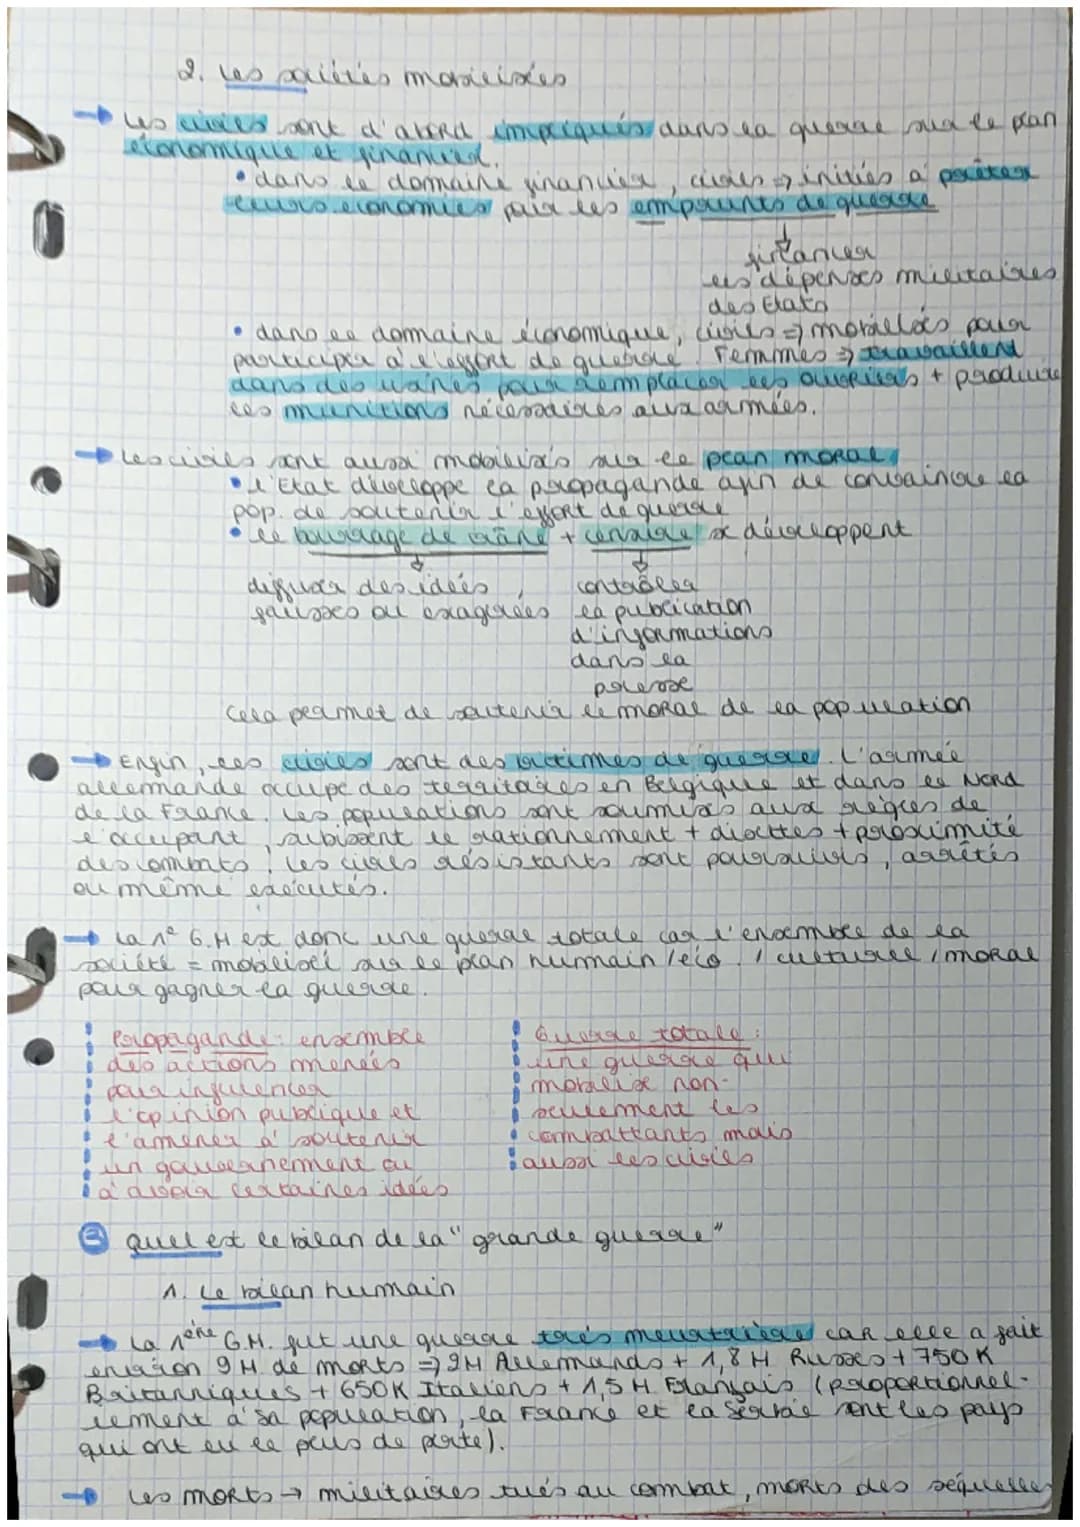 2. Les sociétés mobilisées
→ Les civils sont d'abord impliqués dans la guerre sur le plan
économique et financier.
• dans le domaine financier, civils => initiés à prêter
leurs économies pair les emprunts de guerre
↓
financer
les dépenses militaires
des Etats
• dans le domaine économique, civils => mobilisés pour
participer à l'effort de guerre. Femmes => travaillent
dans des usines pour remplacer les ouvriers + produire
les munitions nécessaires aux armées.
→ Les civils sont aussi mobilisés sur le plan moral
• l'Etat développe la propagande afin de convaincre la
pop. de soutenir l'effort de guerre
• le bourrage de crâne + censure se développent
↓ ↓
diffuser des idées contrôler
fausses ou exagérées la publication
d'informations
dans la
presse
Cela permet de soutenir le moral de la population
→ Enfin, les civils sont des victimes de guerre. L'armée
allemande occupe des territoires en Belgique et dans le Nord
de la France. Les populations sont soumises aux règles de
l'occupant, subissent le rationnement + disettes + proximité
des combats. Les civils résistants sont poursuivis, arrêtés
ou même exécutés.
→ La 1e G.H est donc une guerre totale car l'ensemble de la
société = mobilisée sur le plan humain / éco. / culturel / moral
pour gagner la guerre.
Propagande : ensemble
des actions menées
pour influencer
l'opinion publique et
l'amener à soutenir
un gouvernement ou
à avoir certaines idées
Guerre totale :
une guerre qui
mobilise non-
seulement les
combattants mais
aussi les civils
3 quel est le bilan de la "grande guerre"
1. Le bilan humain
→ La 1ère G.M. fut une guerre très meurtrière car elle a fait
environ 9M de morts => 2M Allemands + 1,8M Russes + 750K
Britanniques + 650K Italiens + 1,5M Français (proportionnel-
lement à sa population, la France et la Serbie sont les pays
qui ont eu le plus de perte).
→ Les morts → militaires tués au combat, morts des séquelles